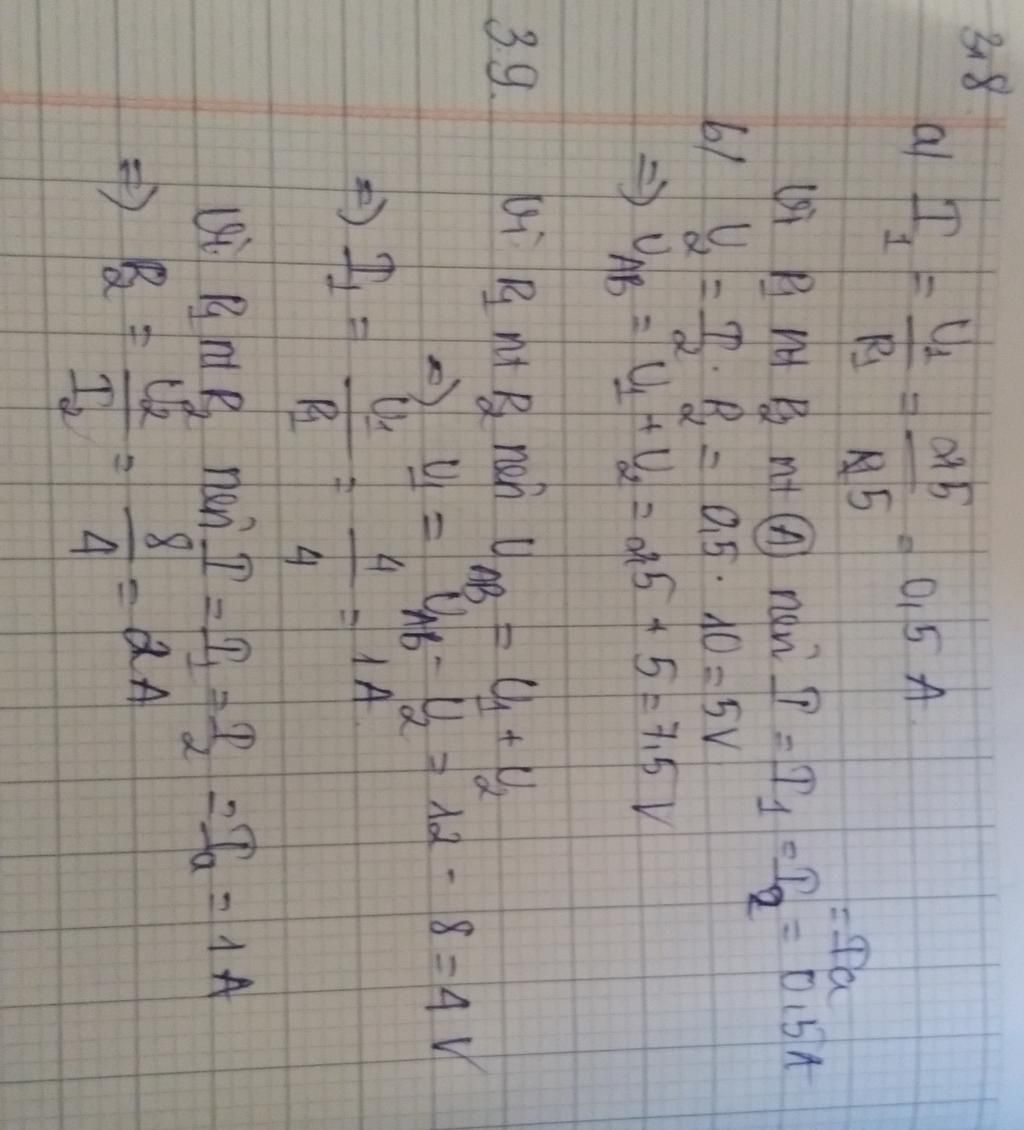 3.8
a) I1 = U1/R1 = 2,5/R,5 = 0,5 A
= Ia
Vì R1 nt R2 nt (A) nên I = I1 = I2 = 0,5A
b) U2 = I2 . R2 = 0,5 . 10 = 5V
=> UAB = U1 + U2 = 2,5 + 5 = 7,5 V
3.9. Vì R1 nt R2 nên UAB = U1 + U2
=> U1 = UAB - U2 = 12 - 8 = 4 V
=> I1 = U1/R1 = 4/4 = 1A
Vì R1 nt R2 nên I = I1 = I2 = Ia = 1 A
=> R2 = U2/I2 = 8/4 = 2 A